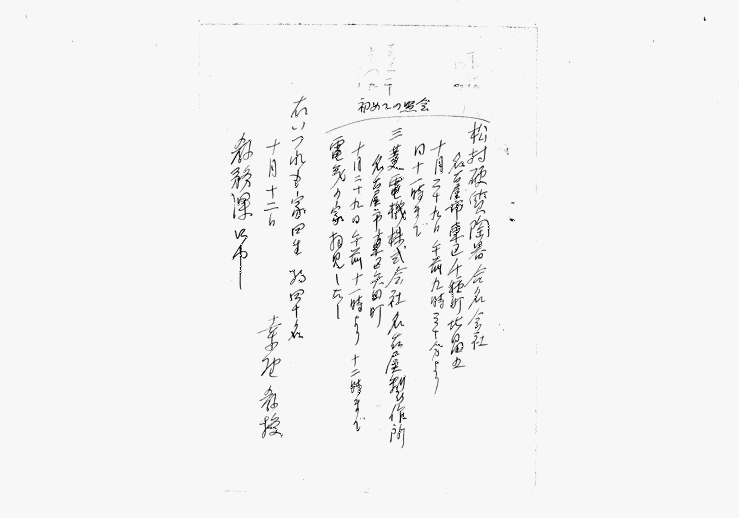 初めての照会
松村硬質陶器合名会社
名古屋市東区千種町
十月二十九日午前九時三十分より
同十一時まで
三菱電機株式会社名古屋製作所
名古屋市東区矢田町
十月二十九日午前十一時より十二時まで
電気の家
右いづれも家田生 約四十名
十月十二日
教授
教務課